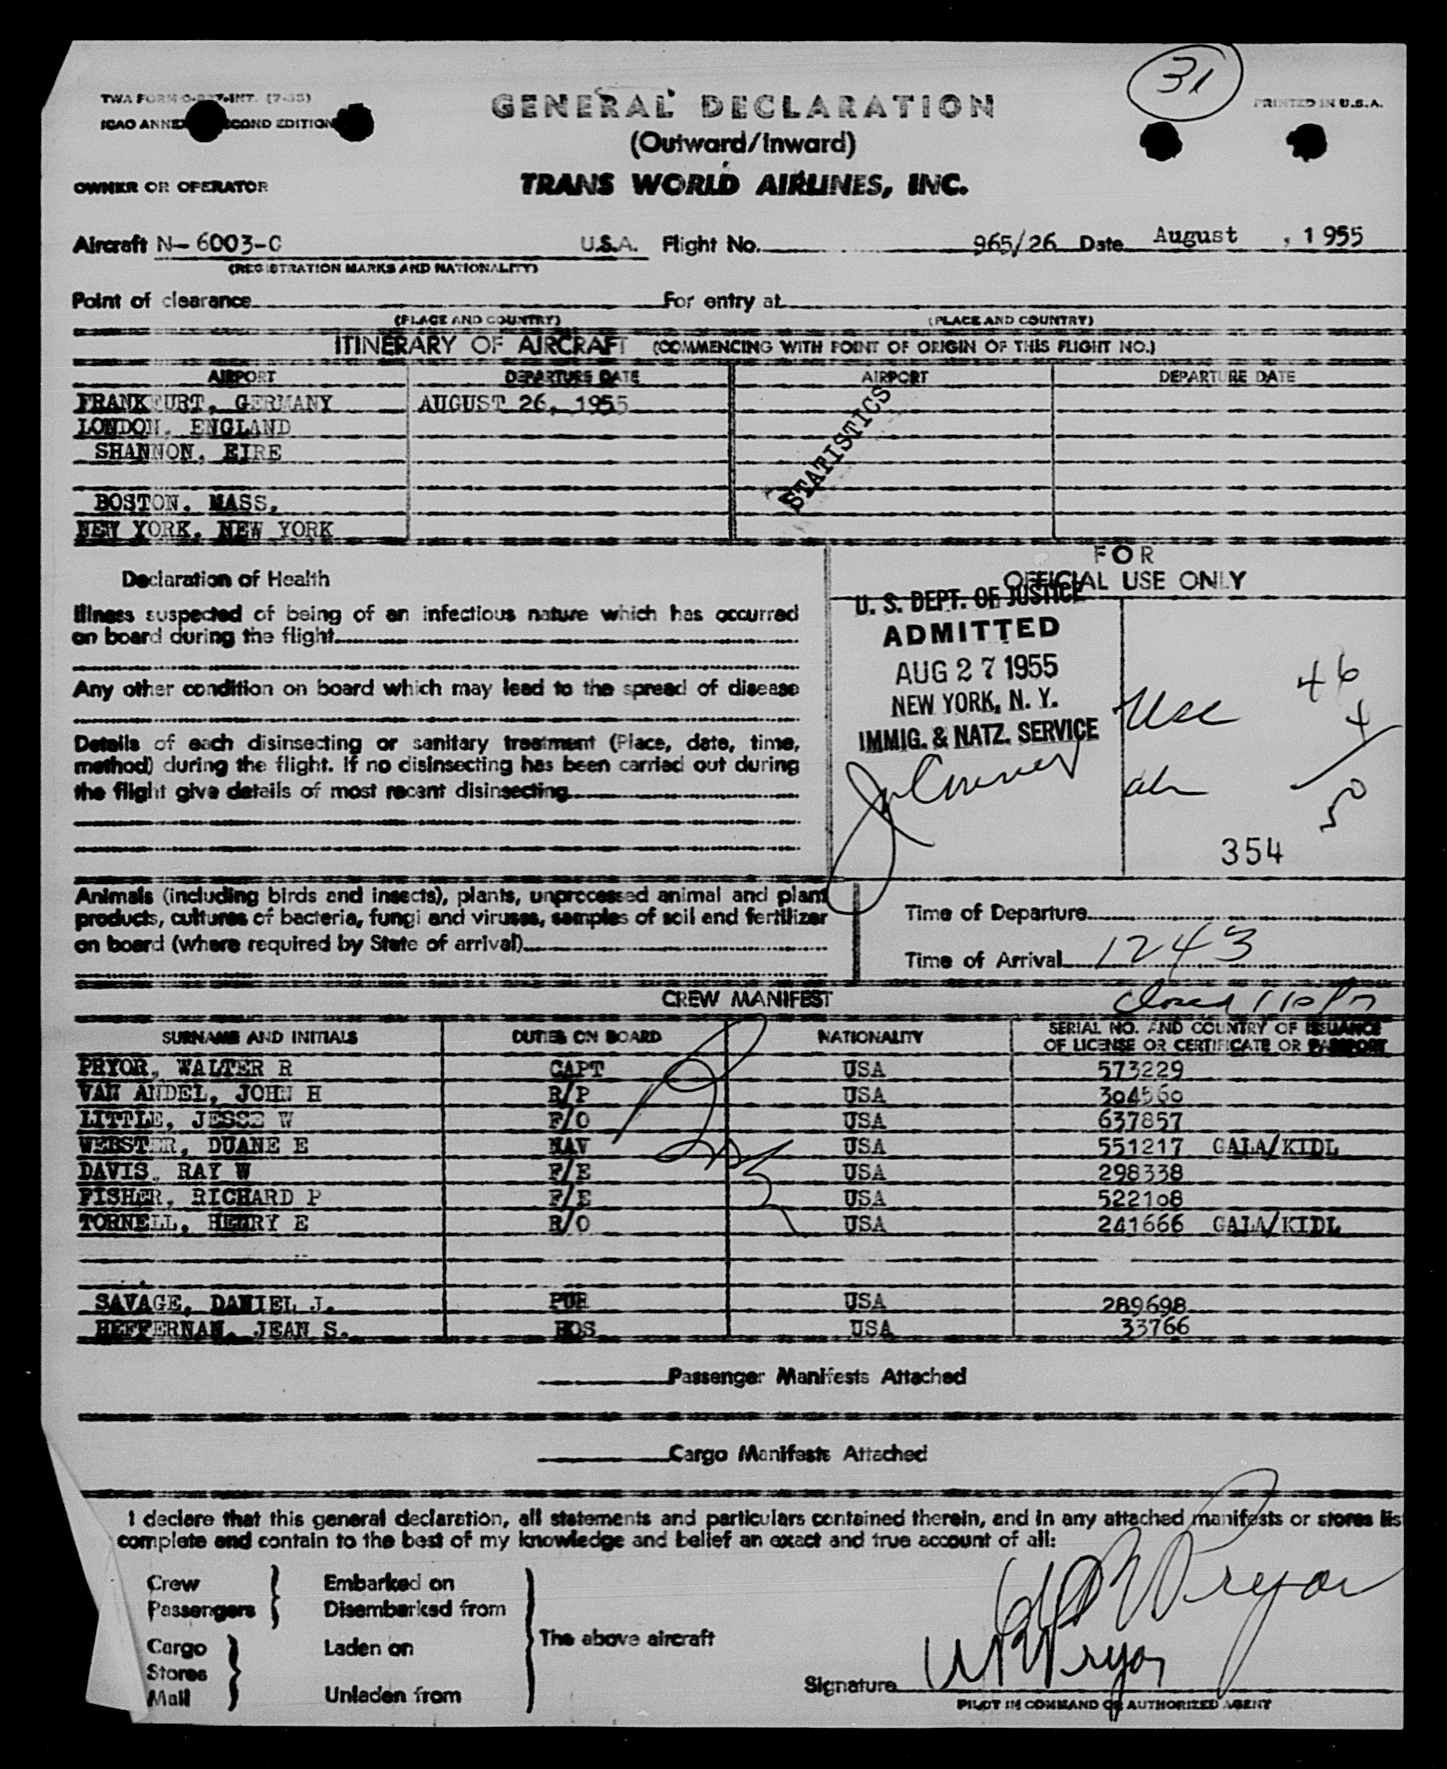 31
TWA FORM O- -INT. (7-55)
PRINTED IN U.S.A.
ICAO ANNEX SECOND EDITION
GENERAL DECLARATION
(Outward/Inward)
OWNER OR OPERATOR TRANS WORLD AIRLINES, INC.
Aircraft N-6003-C U.S.A. Flight No. 965/26 Date August , 1955
(REGISTRATION MARKS AND NATIONALITY)
Point of clearance For entry at
(PLACE AND COUNTRY) (PLACE AND COUNTRY)
ITINERARY OF AIRCRAFT (COMMENCING WITH POINT OF ORIGIN OF THIS FLIGHT NO.)
AIRPORT DEPARTURE DATE AIRPORT DEPARTURE DATE
FRANKFURT, GERMANY AUGUST 26, 1955
LONDON, ENGLAND
SHANNON, EIRE
STATISTICS
BOSTON, MASS.
NEW YORK, NEW YORK
FOR
OFFICIAL USE ONLY
Declaration of Health
Illness suspected of being of an infectious nature which has occurred
on board during the flight
Any other condition on board which may lead to the spread of disease
Details of each disinsecting or sanitary treatment (Place, date, time,
method) during the flight. If no disinsecting has been carried out during
the flight give details of most recent disinsecting
U. S. DEPT. OF JUSTICE
ADMITTED
AUG 27 1955
NEW YORK, N. Y.
IMMIG. & NATZ. SERVICE
Usc 46
4
aln 50
354
Animals (including birds and insects), plants, unprocessed animal and plant
products, cultures of bacteria, fungi and viruses, samples of soil and fertilizer
on board (where required by State of arrival)
Time of Departure
Time of Arrival 1243
CREW MANIFEST
SURNAME AND INITIALS DUTIES ON BOARD NATIONALITY SERIAL NO. AND COUNTRY OF ISSUANCE
OF LICENSE OR CERTIFICATE OR PASSPORT
PRYOR, WALTER R CAPT USA 573229
VAN ANDEL, JOHN H R/P USA 304560
LITTLE, JESSE W F/O USA 637857
WEBSTER, DUANE E NAV USA 551217 GALA/KIDL
DAVIS, RAY W F/E USA 298338
FISHER, RICHARD P F/E USA 522108
TORNELL, HENRY E R/O USA 241666 GALA/KIDL
SAVAGE, DANIEL J. PUR USA 289698
HEFFERNAN, JEAN S. HOS USA 33766
Passenger Manifests Attached
Cargo Manifests Attached
I declare that this general declaration, all statements and particulars contained therein, and in any attached manifests or stores lis
complete and contain to the best of my knowledge and belief an exact and true account of all:
Crew Embarked on
Passengers Disembarked from
Cargo Laden on The above aircraft
Stores
Mail Unladen from
W R Pryor
Signature W R Pryor
PILOT IN COMMAND OR AUTHORIZED AGENT